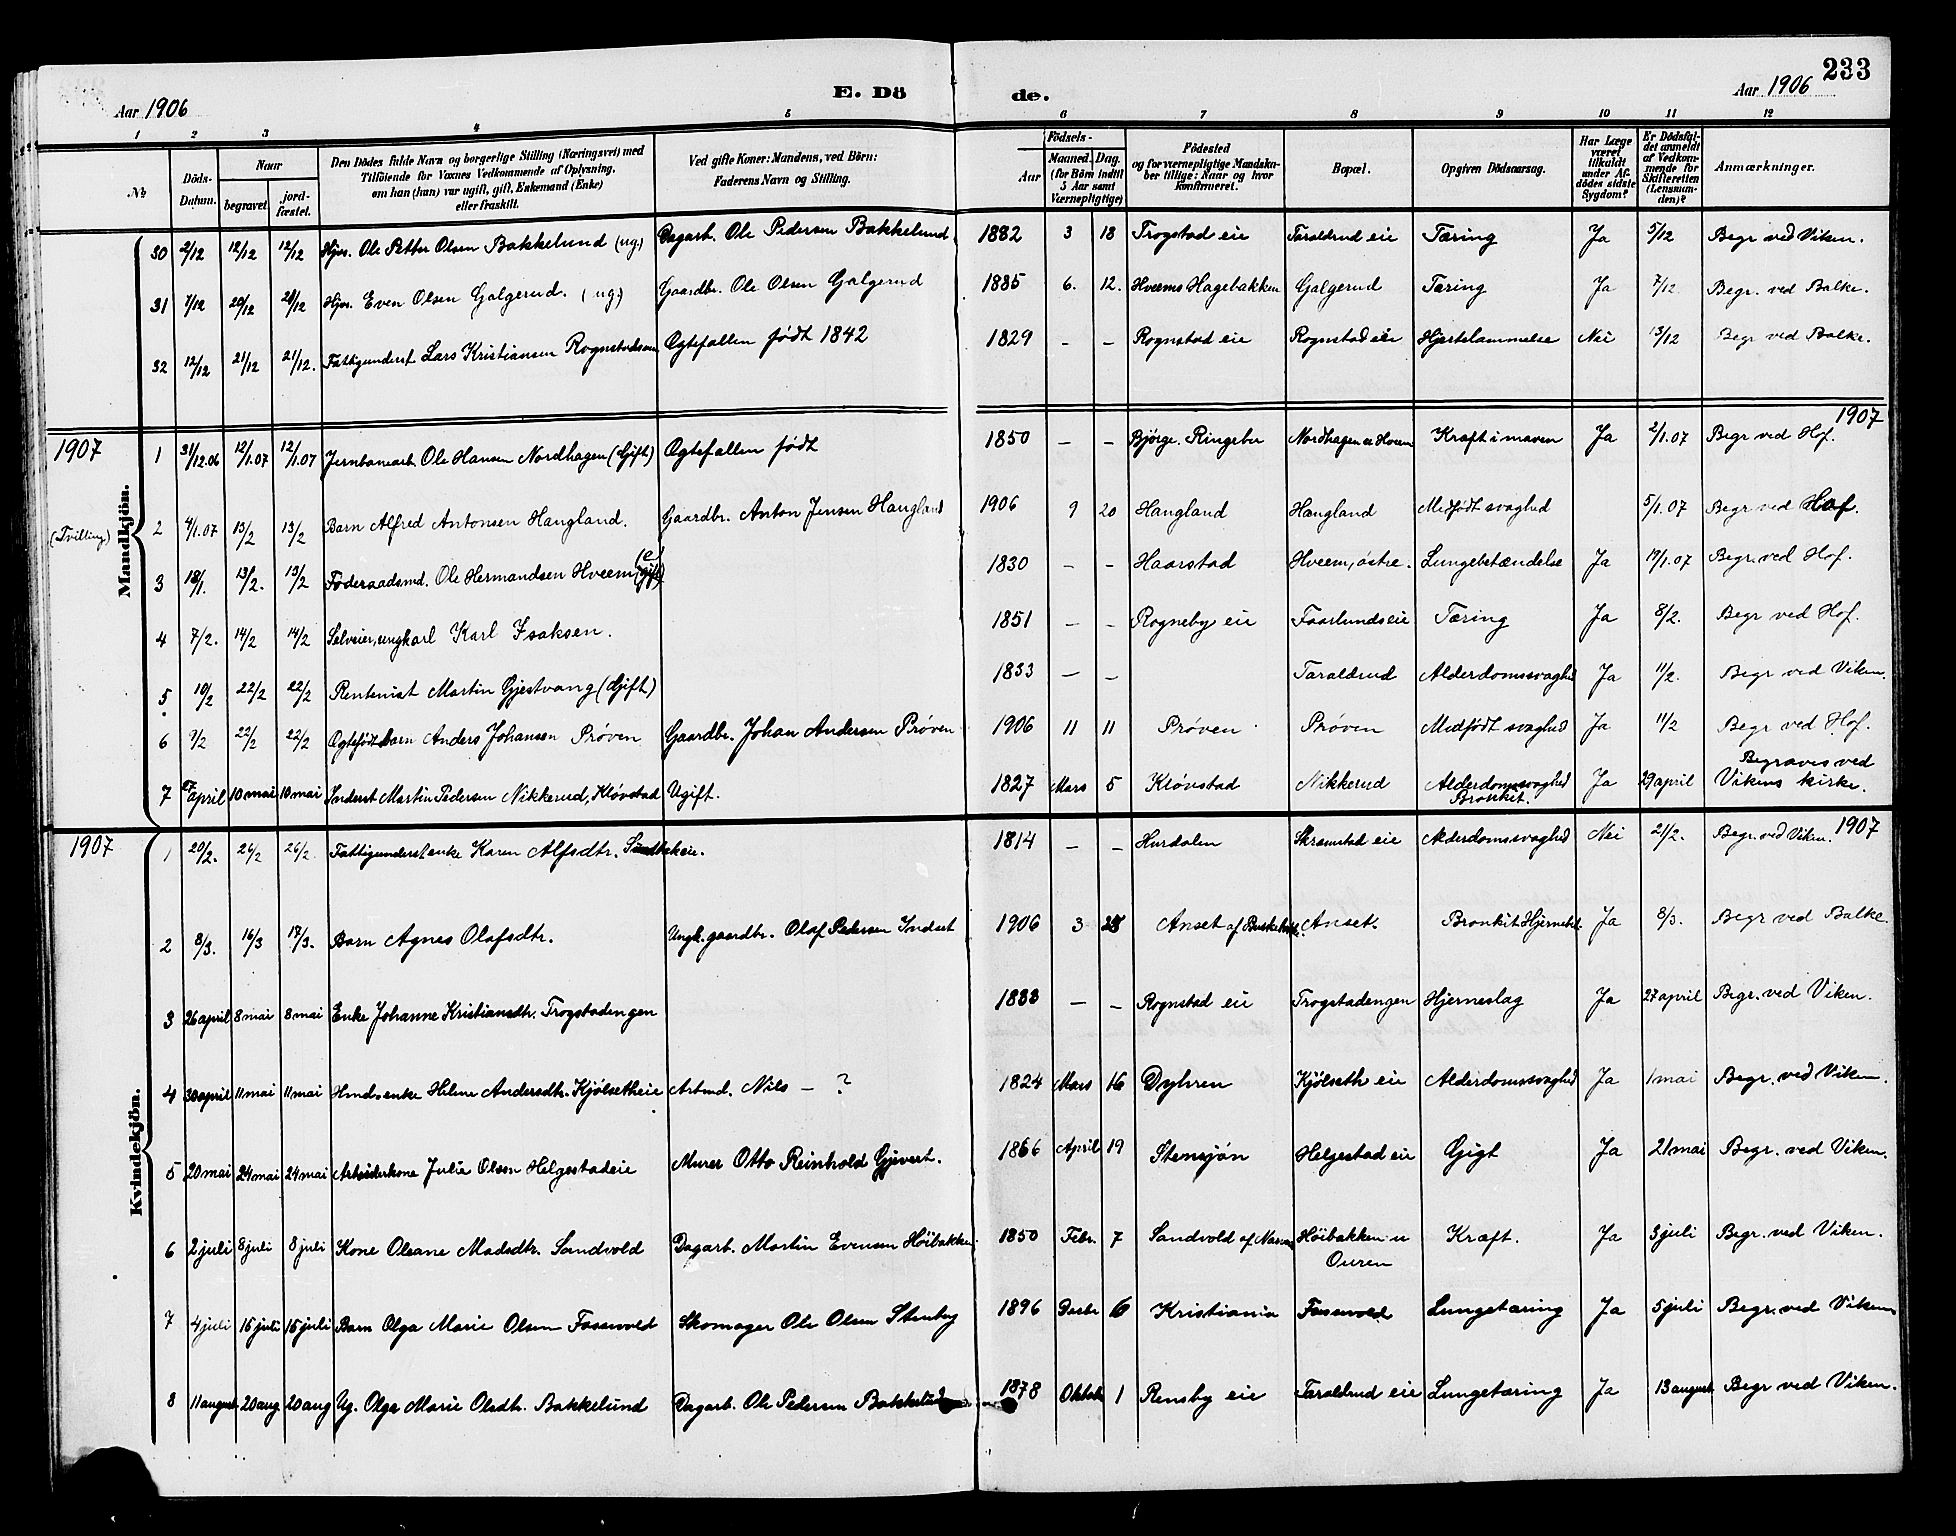 233
Aar 1906 E. Dö de. Aar 1906
1 2 3 4 5 6 7 8 9 10 11 12
№ Döds-Datum. Naar begravet. jord-fæstet. Den Dödes fulde Navn og borgerlige Stilling (Næringsvei) med Tilföiende for Voxnes Vedkommende af Oplysning, om han (hun) var ugift, gift, Enkemand (Enke) eller fraskilt. Ved gifte Koner: Mandens, ved Börn: Faderens Navn og Stilling. Födsels- Aar Maaned. Dag. (for Börn indtil 5 Aar samt Værnepligtige) Födested og for værnepligtige Mandskaber tillige: Naar og hvor konfirmeret. Bopæl. Opgiven Dödsaarsag. Har Læge været tilkaldt under Afdödes sidste Sygdom? Er Dödsfaldet anmeldt af Vedkommende for Skifteretten (Lensmanden)? Anmærkninger.
Mandkjön.
30 2/12 12/12 12/12 Hjvs. Ole Petter Olsen Bakkelund (ug.) Dagarb. Ole Pedersen Bakkelund 1882 3 18 Trogstad eie Taraldrud eie Tæring Ja 5/12 Begr ved Viken.
31 7/12 20/12 20/12 Hjvs. Even Olsen Galgerud. (ug.) Gaardbr. Ole Olsen Galgerud 1885 6. 12. Hveems Hagebakken Galgerud Tæring Ja 7/12 Begr. ved Balke.
32 12/12 21/12 21/12. Fattigunderst Lars Kristiansen Rognstadeie Ægtefællen født 1842 1829 - - Rognstad eie Rognstad eie Hjertelammelse Nei 13/12 Begr ved Balke.
1907 1907
1 31/12.06 12/1.07 12/1.07 Jernbanearb. Ole Hansen Nordhagen (Gift) Ægtefællen født 1850 - - Bjørge. Ringebu Nordhagen u Hveem Kræft i maven Ja 2/1.07 Begr ved Hof.
(Tvilling) 2 4/1.07 13/2 13/2 Barn Alfred Antonsen Haugland. Gaardbr. Anton Jensen Haugland 1906 9 20 Haugland Haugland Medfødt svaghed 5/1.07 Begr ved Hof.
3 18/1. 13/2. 13/2 Føderaadsmd. Ole Hermandsen Hveem (e) (gift) 1830 - - Haarstad Hveem, østre. Lungebetændelse Ja 19/1.07 Begr. ved Hof.
4 7/2. 14/2 14/2 Selveier, ungkarl Karl Isaksen. 1851 - - Rogneby eie Faarlundseie Tæring Ja 8/2. Begr ved Hof.
5 10/2 22/2 22/2 Rentenist Martin Gjestvang (Gift) 1833 - - Taraldrud Alderdomssvaghed Ja 11/2. Begr ved Viken.
6 9/2 22/2 22/2 Ægtefødt barn Anders Johansen Prøven Gaardbr. Johan Andersen Prøven 1906 11 11 Prøven Prøven Medfødt svaghed Ja 11/2 Begr ved Hof.
7 27 april 10 mai 10 mai Inderst Martin Pedersen Nikkerud, Kløvstad Ugift. 1827 Mars 5 Kløvstad Nikkerud Alderdomssvaghed Bronkit. Ja 29 april Begraves ved Vikens kirke.
Kvindekjön.
1907 1 20/2. 26/2 26/2 Fattigunderst enke Karen Alfsdtr. 1814 - - Hurdalen Skramstad eie Alderdomssvaghed Nei 21/2. Begr. ved Viken. 1907
2 8/3. 16/3 17/3. Barn Agnes Olafsdtr. Ungk. gaardbr. Olaf Pedersen Indset 1906 3 28 Anset af Anset. Bronkit Ja 8/3. Begr ved Balke
3 26 april 8 mai 8 mai Enke Johanne Kristiansdtr. Trogstadengen 1833 - - Rognstad eie Trogstadengen Hjerneslag Ja 27 april Begr. ved Viken.
4 30 april 11 mai 11 mai Hmdsenke Helene Andersdtr. Kjölsetheie Arbmd. Nils - ? 1824 Mars 16 Dyhren Kjölseth eie Alderdomssvaghed Ja 1 mai Begr. ved Viken.
5 20 mai 24 mai 24 mai Arbeiderkone Julie Olsen Helgestadeie Murer Otto Reinhold Gjevert. 1866 April 19 Stensjön Helgestad eie Gigt Ja 21 mai Begr. ved Viken.
6 2 juli 8 juli 8 juli Kone Oleane Madsdtr. Sandvold Dagarb. Martin Evensen Höibakken. 1850 Febr. 7 Sandvold af Höibakken u Ouren Kræft. Ja 3 juli Begr. ved Viken.
7 4 juli 16 juli 16 juli Barn Olga Marie Olsen Fossvold Skomager Ole Olsen Stenby 1896 Decbr 6 Kristiania Fossvold Lungetæring Ja 5 juli Begr. ved Viken
8 11 august 20 aug 20 aug Ug. Olga Marie Olsdtr. Bakkelund Dagarb. Ole Pedersen Bakkelund 1878 Oktob 1 Rensby eie Taraldrud eie Lungetæring Ja 13 august Begr ved Viken.